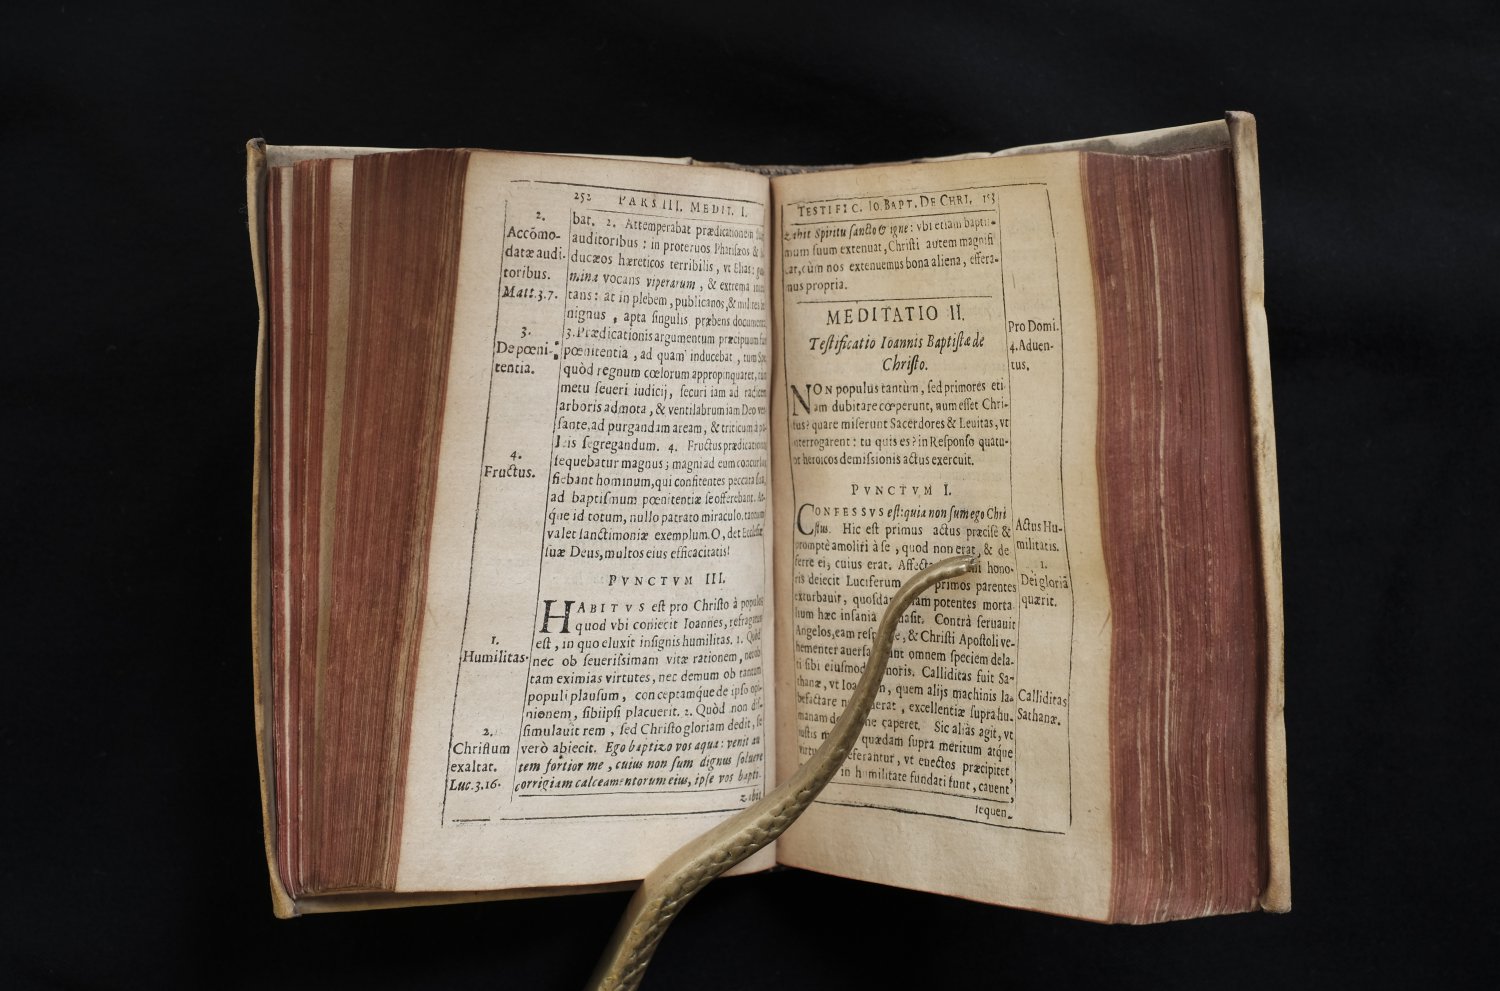 252 PARS III. MEDIT. I.
2.
Accõmo-
datæ audi-
toribus.
Matt.3.7.
3.
De pœni-
tentia.
4.
Fructus.
1.
Humilitas.
2.
Christum
exaltat.
Luc.3.16.
bat. 2. Attemperabat prædicationem
auditoribus : in proteruos Pharisæos &
ducæos hæreticos terribilis, vt Elias:
mina vocans viperarum, & extrema
tans: at in plebem, publicanos, & milites
nignus, apta singulis præbens documenta
3. Prædicationis argumentum præcipuum
pœnitentia, ad quam inducebat, tum
quòd regnum cœlorum appropinquaret,
metu seueri iudicij, securi iam ad radicem
arboris admota, & ventilabrum iam Deo
sante, ad purgandam aream, & triticum à
leis segregandum. 4. Fructus prædicationis
sequebatur magnus; magni ad eum
fiebant hominum, qui confitentes peccata sua,
ad baptismum pœnitentiæ se offerebant. At-
que id totum, nullo patrato miraculo. tantum
valet sanctimoniæ exemplum. O, det Ecclesiæ
suæ Deus, multos eius efficacitatis!
PVNCTVM III.
HABITVS est pro Christo à populo
quod vbi coniecit Ioannes,
est, in quo eluxit insignis humilitas. 1. Quòd
nec ob seuerissimam vitæ rationem, nec ob
tam eximias virtutes, nec demum ob tantum
populi plausum, conceptamque de ipso opi-
nionem, sibiipsi placuerit. 2. Quòd non dis-
simulauit rem, sed Christo gloriam dedit, se
verò abiecit. Ego baptizo vos aqua: venit au
tem fortior me, cuius non sum dignus soluere
corrigiam calceamentorum eius, ipse vos bapti-
zabit
TESTIFIC. IO. BAPT. DE CHRI. 253
zabit Spiritu sancto & igne: vbi etiam baptis-
mum suum extenuat, Christi autem magnifi
cat, cùm nos extenuemus bona aliena, effera-
mus propria.
MEDITATIO II.
Testificatio Ioannis Baptistæ de
Christo.
NON populus tantùm, sed primores eti-
am dubitare cœperunt, num esset Chri-
tus? quare miserunt Sacerdores & Leuitas, vt
interrogarent: tu quis es? in Responso quatu-
or heroicos demissionis actus exercuit.
PVNCTVM I.
CONFESSVS est: quia non sum ego Chri
stus. Hic est primus actus præcisè &
promptè amoliri à se, quod non erat, & de
ferre ei, cuius erat. hono-
ris deiecit Luciferum primos parentes
exturbauit, potentes morta
lium hæc insania Contrà seruauit
Angelos, eam & Christi Apostoli ve-
hementer omnem speciem dela-
ti sibi Calliditas fuit Sa-
thanæ, vt quem alijs machinis la-
befactare excellentiæ supra hu-
manam caperet. Sic aliàs agit, vt
iustis quædam supra meritum atque
vt euectos præcipitet,
in humilitate fundati sunt, cauent,
sequen-
Pro Domi.
4. Aduen-
tus.
Actus Hu-
militatis.
1.
Dei gloriã
quærit.
Calliditas
Sathanæ.